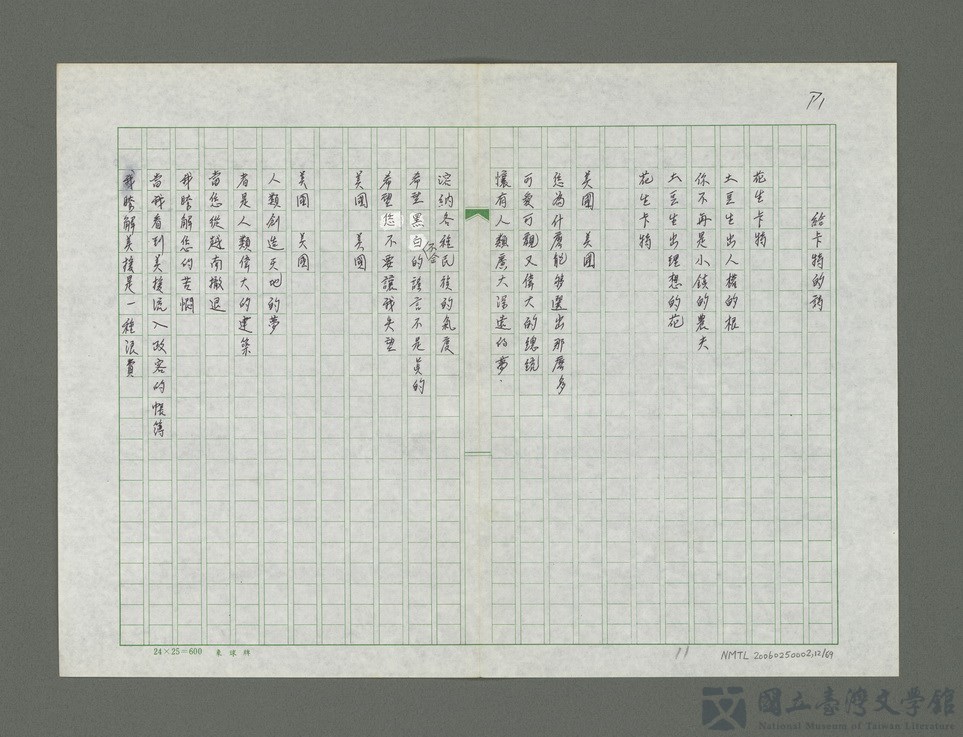 P1
給卡特的詩
花生卡特
土豆生出人權的根
你不再是小鎮的農夫
土豆生出理想的花
花生卡特
美國 美國
您為什麼能够選出那麼多
可愛可親又偉大的總統
懷有人類廣大深遠的夢.
容納各種民族的氣度
希望黑白不合的謠言不是真的
希望您不要讓我失望
美國 美國
美國 美國
人類創造天地的夢
看是人類偉大的建築
當您從越南撤退
我瞭解您的苦悶
當我看到美援流入政客的帳簿
我瞭解美援是一種浪費
24×25=600
11
NMTL 20060250002,12/69
國立臺灣文學館
National Museum of Taiwan Literature